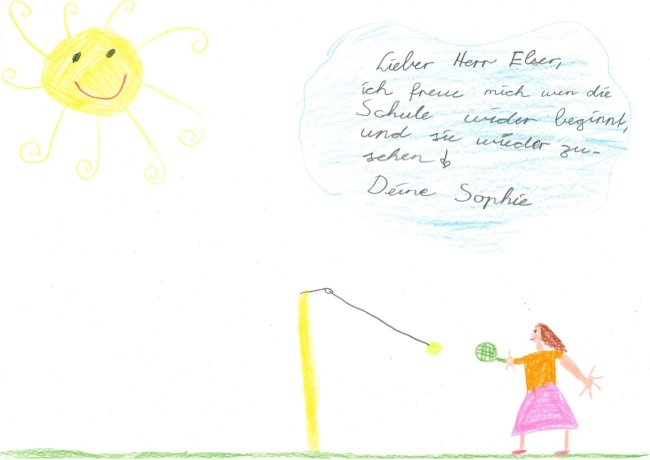 Lieber Herr Elser,
ich freue mich wen die
Schule wider beginnt,
und sie wieder zu-
sehen
Deine Sophie